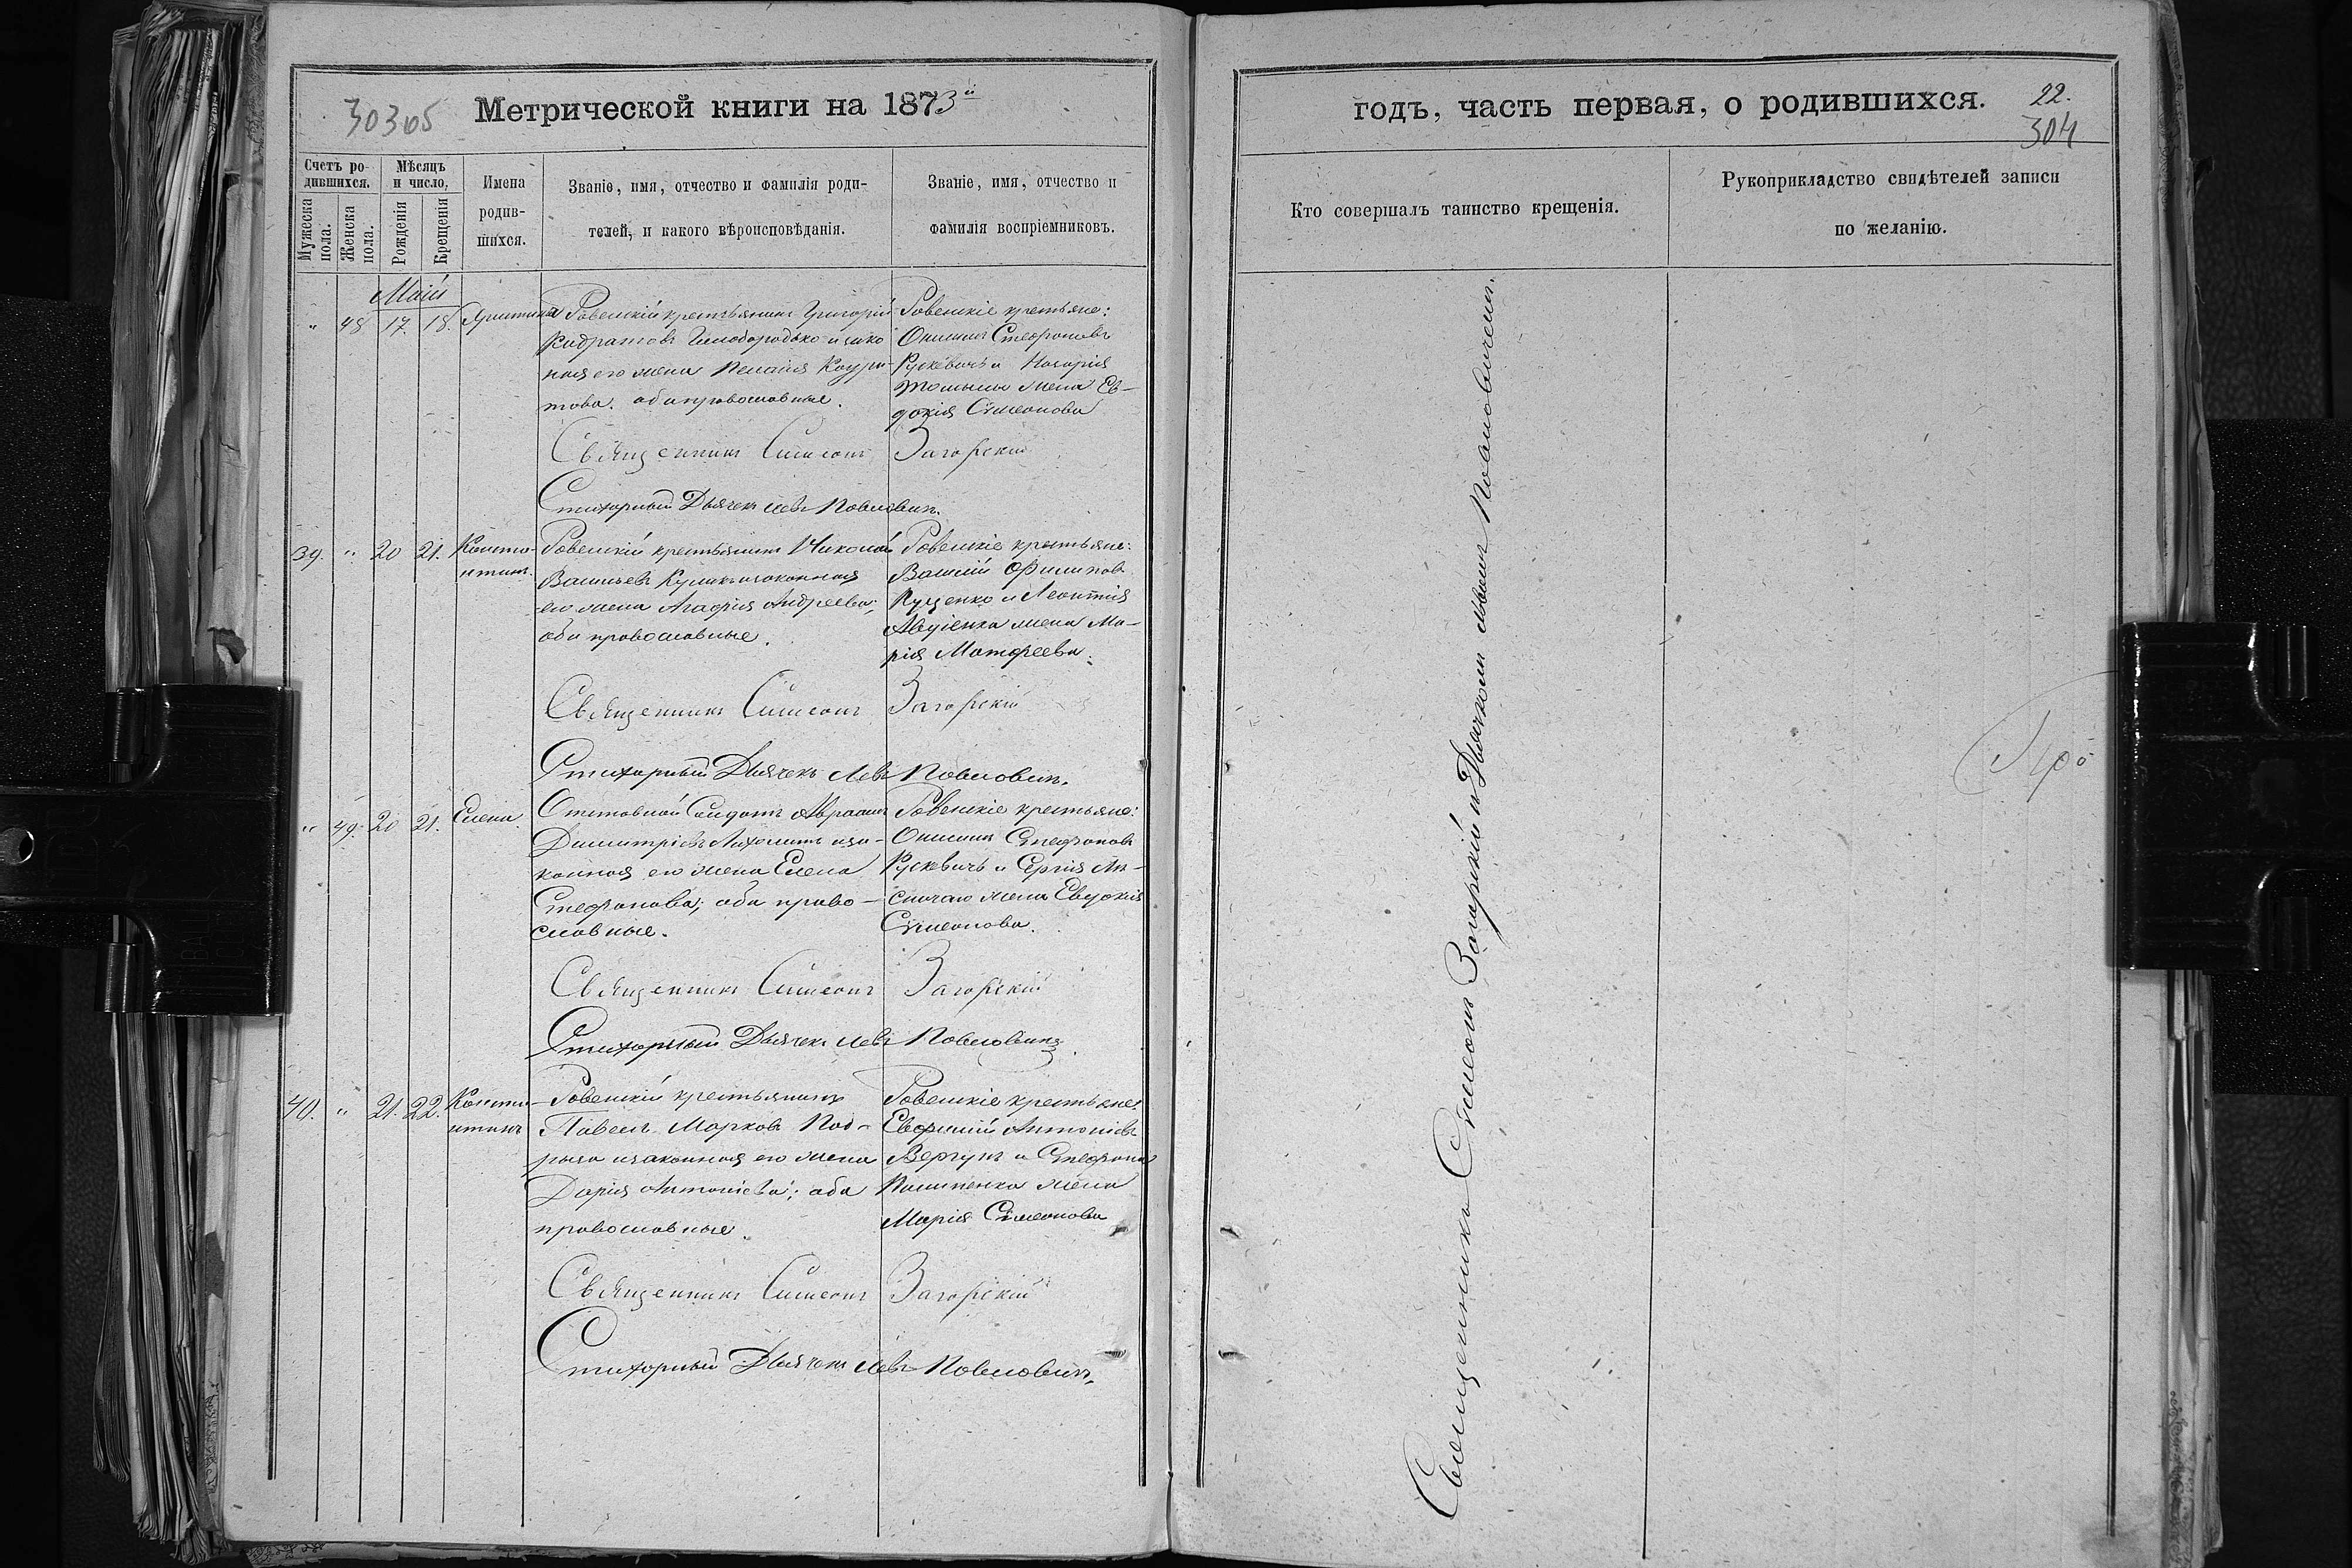 30305 Метрической книги на 1873й
Счетъ родившихся. Мѣсяцъ и число. Имена родившихся. Званіе, имя, отчество и фамилія родителей, и какого вѣроисповѣданія. Званіе, имя, отчество и фамилія воспріемниковъ.
Мужеска пола. Женска пола. Рожденія Крещенія
Маій
" 48 17. 18.
Ровенскій крестьянинъ Григорій
его жена Пелагія
това. оба православные.
Ровенскіе крестьяне:
Онисимъ Стефановъ
Рускевичъ и
жена Ев-
докія Симеонова
Священникъ Симеонъ Загорскій
Стихарный Дьячекъ Левъ Павловичъ.
39. " 20 21. Конста-
нтинъ.
Ровенскій крестьянинъ Николай
Васильевъ Куликъ изаконная
его жена Агафія Андреева;
оба православные.
Ровенскіе крестьяне:
Василій Филиповъ
Куценко и Леонтія
Авдіенка жена Ма-
рія Матфеева.
Священникъ Симеонъ Загорскій
Стихарный Дьячекъ Левъ Павловичъ.
" 49. 20 21. Елена.
Отставной Солдатъ Авраамъ
Димитріевъ иза-
конная его жена Елена
Стефанова; оба право-
славные.
Ровенскіе крестьяне:
Онисимъ Стефановъ
Рускевичъ и Сергія
жена Евдокія
Симеонова.
Священникъ Симеонъ Загорскій
Стихарный Дьячекъ Левъ Павловичъ.
40. " 21. 22. Конста-
нтинъ
Ровенскій крестьянинъ
Павелъ Марковъ Под-
изаконная его жена
Дарія Антоніева; оба
православные.
Ровенскіе крестьяне:
Евфимій Антоніевъ
Вергунъ и Стефана
жена
Марія Симеонова
Священникъ Симеонъ Загорскій
Стихарный Дьячекъ Левъ Павловичъ.
годъ, часть первая, о родившихся. 22.
304
Кто совершалъ таинство крещенія.
Рукоприкладство свидѣтелей записи по желанію.
Священникъ Симеонъ Загорскій и Дьячкомъ Львомъ Павловичемъ.